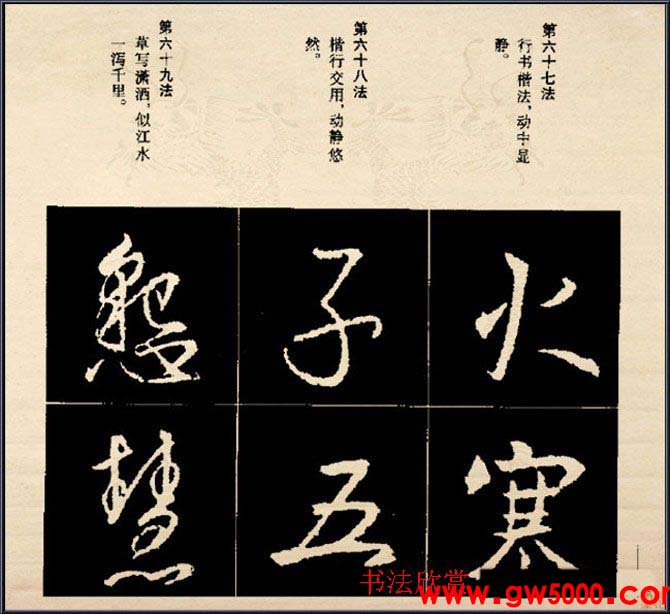 第六十七法
行书楷法，动中显
静。
火
寒
第六十八法
楷行交用，动静悠
然。
子
五
第六十九法
草写潇洒，似江水
一泻千里。
慧
书法欣赏
www.gw5000.com